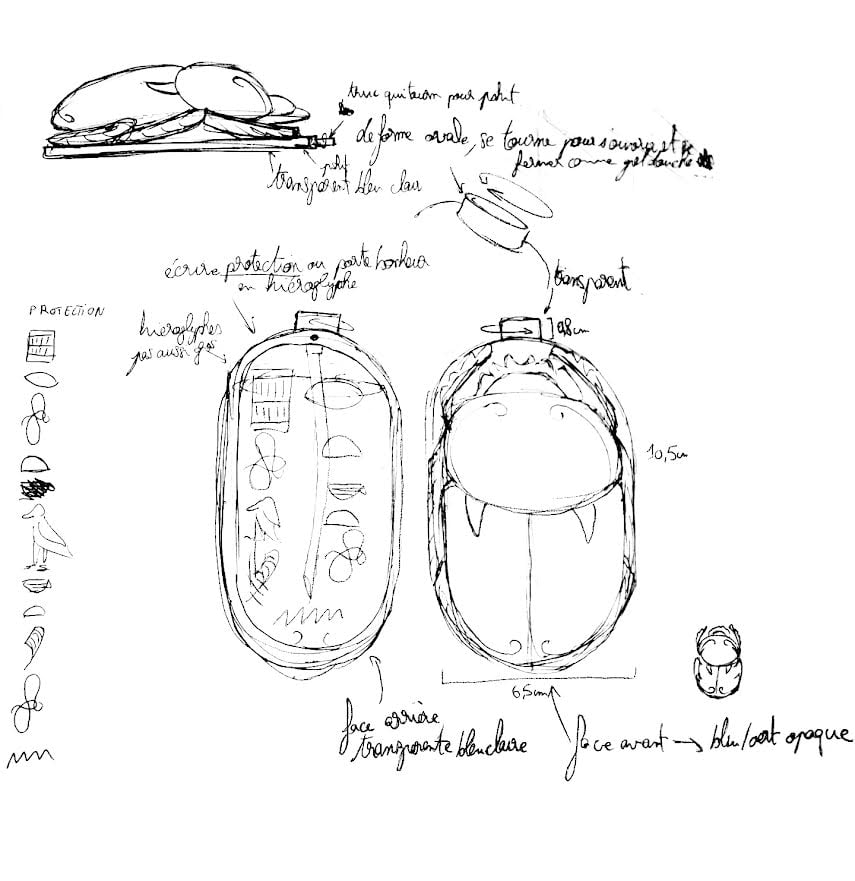 truc qui tourn pour pshit
de forme ovale, se tourne pour s'ouvrir et
fermer comme
pshit
transparent bleu clair
transparent
écrire protection ou porte bonheur
en hiéroglyphe
PROTECTION
hieroglyphes
pas aussi gros
0,8cm
10,5cm
6,5cm
face arrière
transparente bleu claire
face avant → bleu/vert opaque